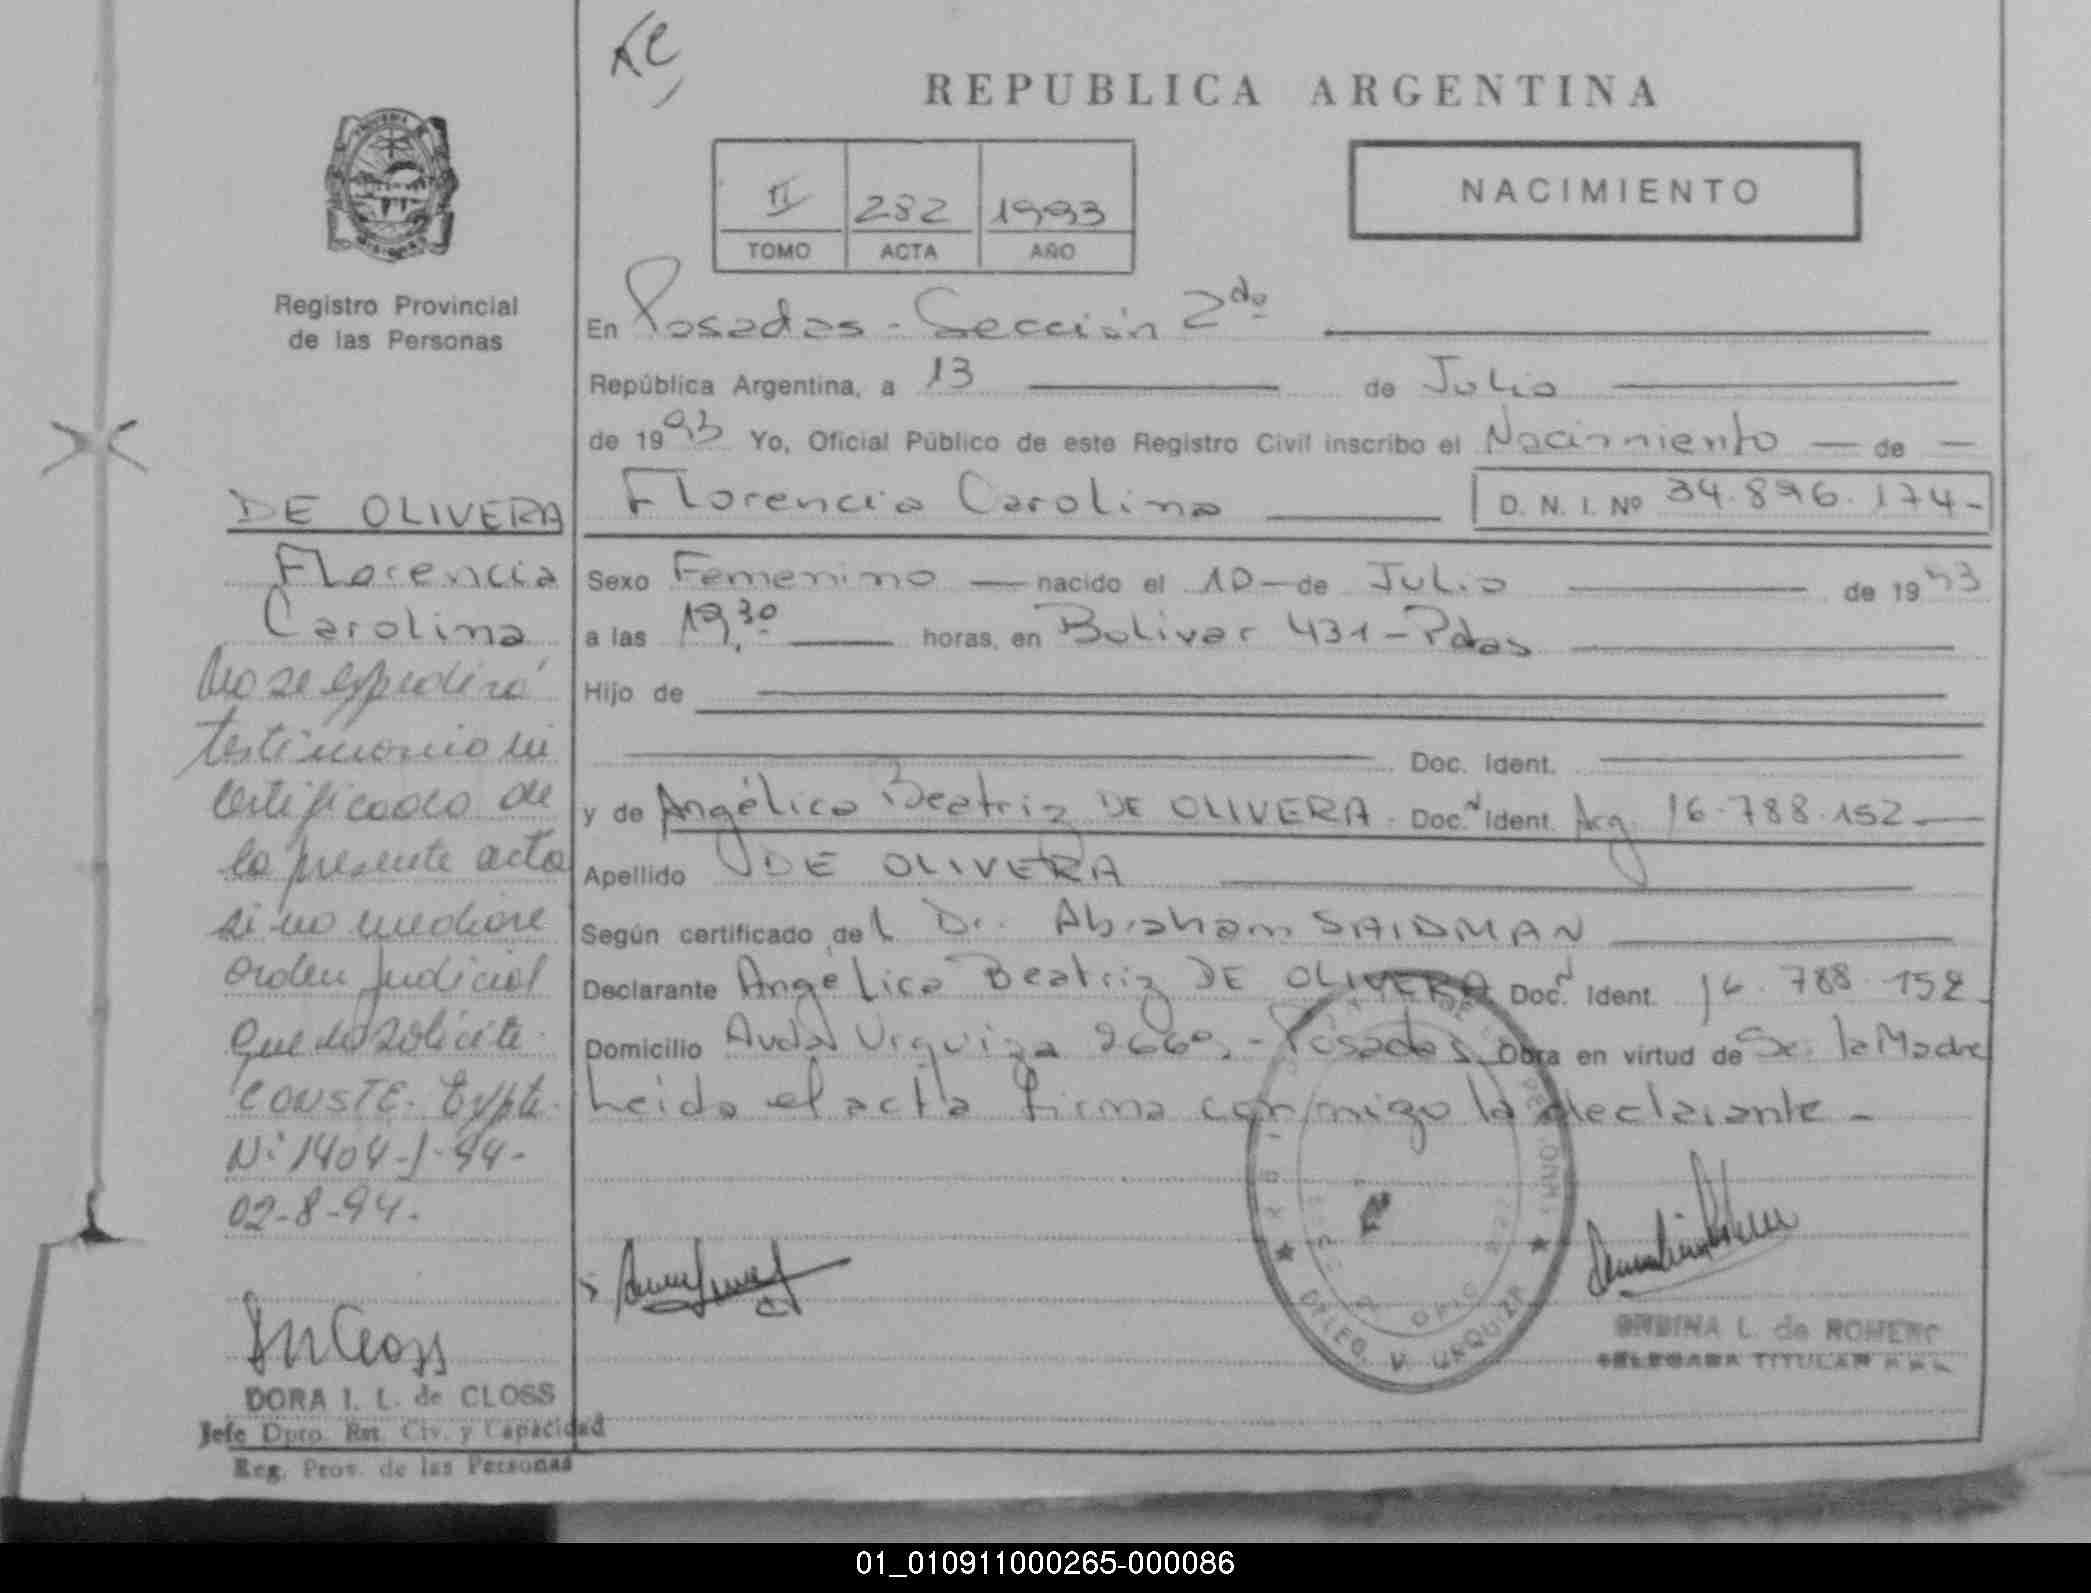 REPUBLICA ARGENTINA
II 282 1993
TOMO ACTA AÑO
NACIMIENTO
Registro Provincial
de las Personas
DE OLIVERA
Florencia
Carolina
No se expedirá
testimonio ni
certificado de
la presente acta
si no mediare
orden judicial
que lo solicite.
CONSTE. Expte.
Nº 1404-J-94-
02-8-94.
DORA I. L. de CLOSS
Jefe Dpto. Est. Civ. y Capacidad
Reg. Prov. de las Personas
En Posadas - Sección 2da
República Argentina, a 13 de Julio
de 1993 Yo, Oficial Público de este Registro Civil inscribo el Nacimiento — de —
Florencia Carolina D. N. I. Nº 34.896.174-
Sexo Femenino — nacido el 10 — de Julio de 1993
a las 19,30 horas, en Bolivar 431 - Pdas
Hijo de
Doc. Ident.
y de Angélica Beatriz DE OLIVERA. Doc.N Ident. Arg. 16.788.152
Apellido DE OLIVERA
Según certificado del Dr. Abraham SAIDMAN
Declarante Angélica Beatriz DE OLIVERA Doc.N Ident. 16.788.152
Domicilio Avda Urquiza 2660, - Posadas. Obra en virtud de Ser la Madre
Leida el acta firma conmigo la declarante -
DELEG. V. URQUIZA
L. de ROMERO
DELEGADA TITULAR
01_010911000265-000086